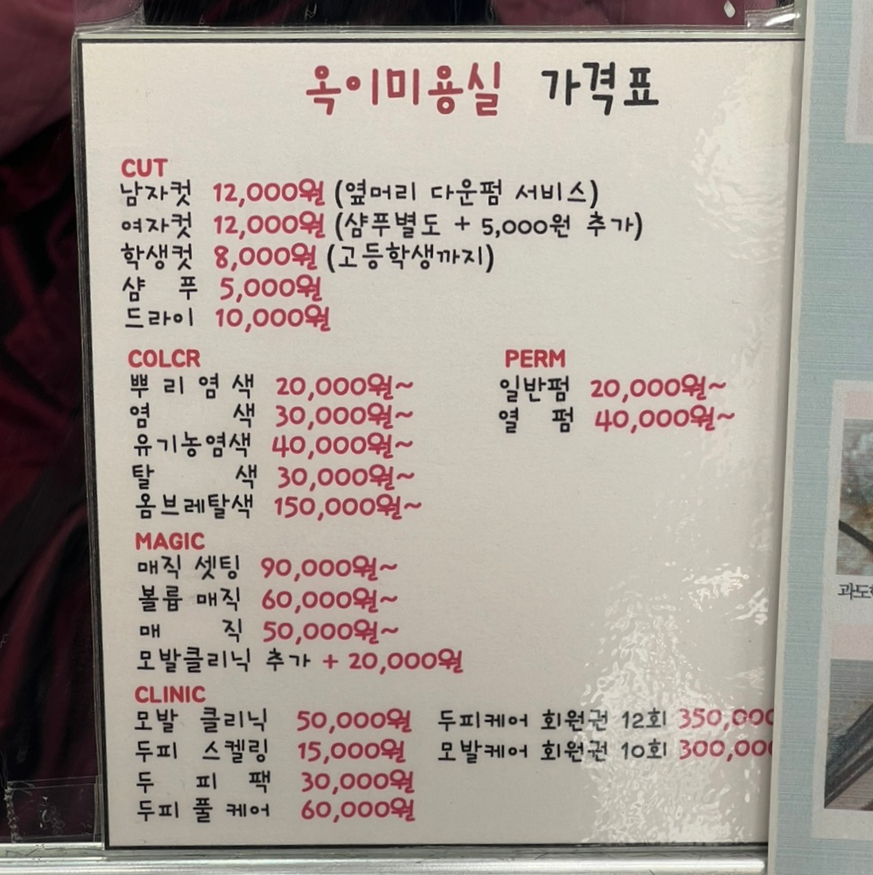 옥이미용실 가격표
CUT
남자컷 12,000원 (옆머리 다운펌 서비스)
여자컷 12,000원 (샴푸별도 + 5,000원 추가)
학생컷 8,000원 (고등학생까지)
샴 푸 5,000원
드라이 10,000원
COLCR
뿌 리 염 색 20,000원~
염 색 30,000원~
유기농염색 40,000원~
탈 색 30,000원~
옴브레탈색 150,000원~
PERM
일반펌 20,000원~
열 펌 40,000원~
MAGIC
매직 셋팅 90,000원~
볼륨 매직 60,000원~
매 직 50,000원~
모발클리닉 추가 + 20,000원
CLINIC
모발 클리닉 50,000원
두피 스켈링 15,000원
두 피 팩 30,000원
두피 풀 케어 60,000원
두피케어 회원권 12회 350,000
모발케어 회원권 10회 300,000